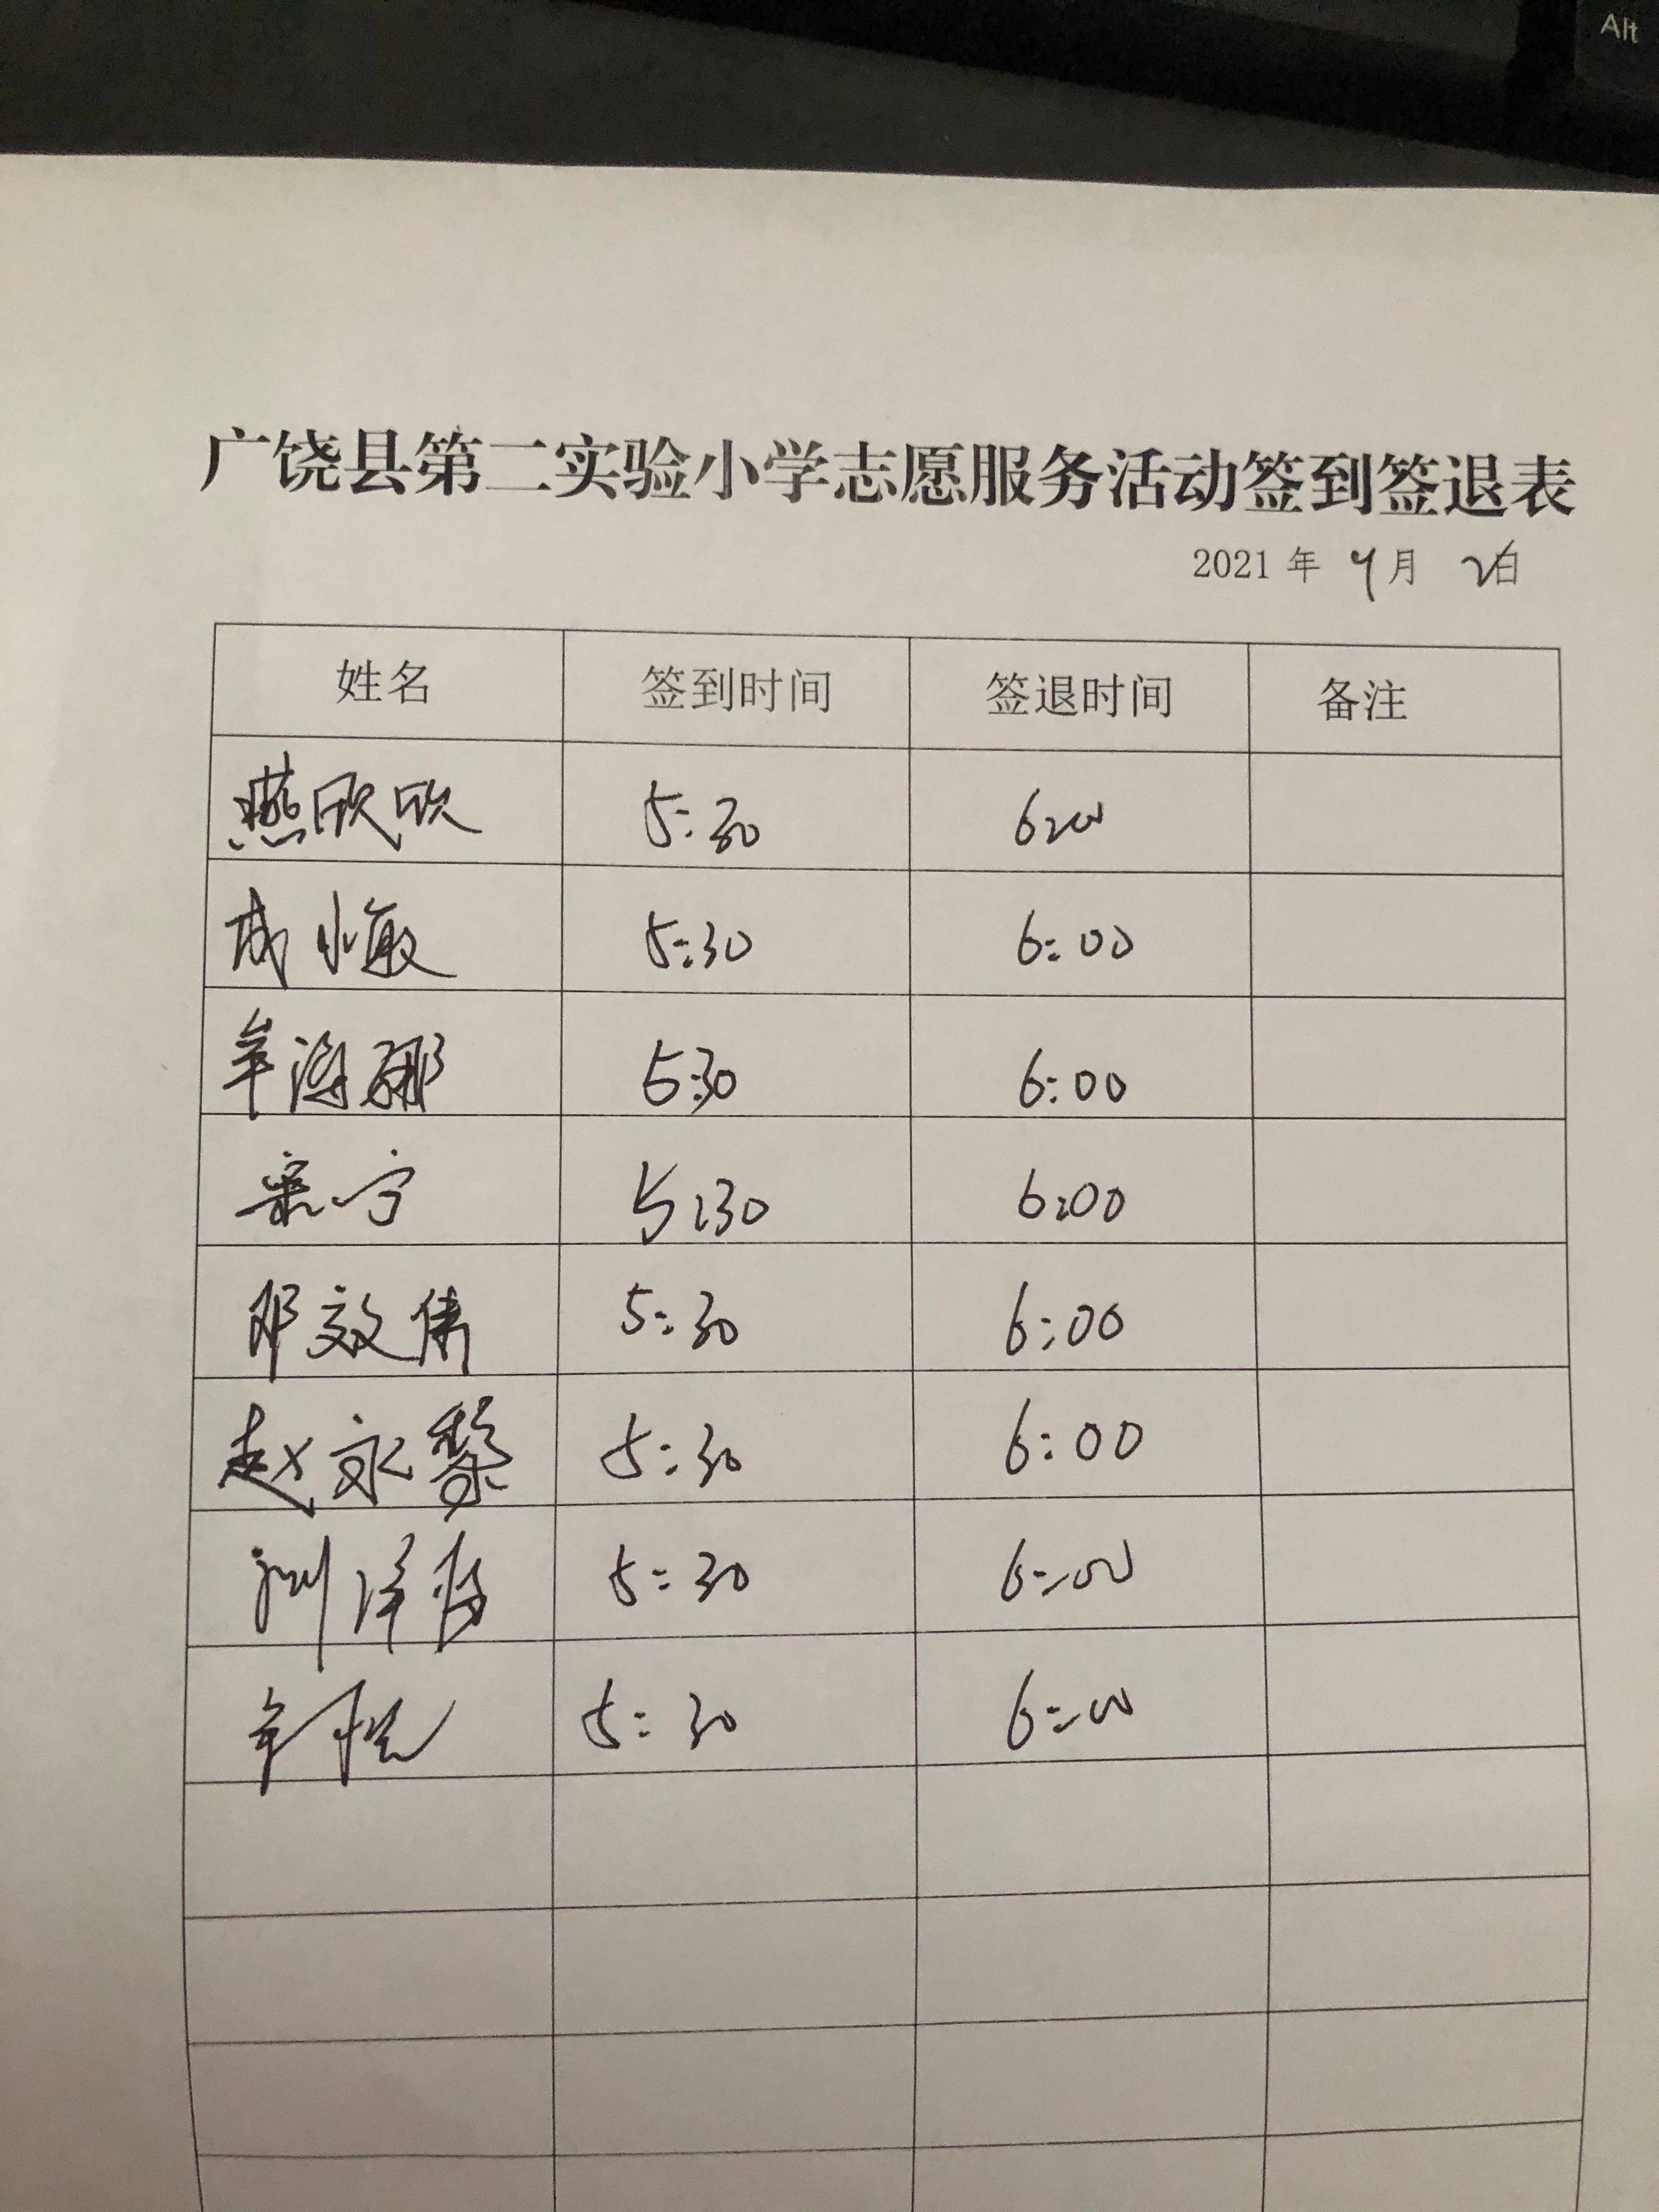 Alt
广饶县第二实验小学志愿服务活动签到签退表
2021 年 9月 日
姓名 签到时间 签退时间 备注
燕欣欣 5:30 6:00
成小敏 5:30 6:00
牟海娜 5:30 6:00
宋宁 5:30 6:00
邓效伟 5:30 6:00
赵永黎 5:30 6:00
5:30 6:00
5:30 6:00